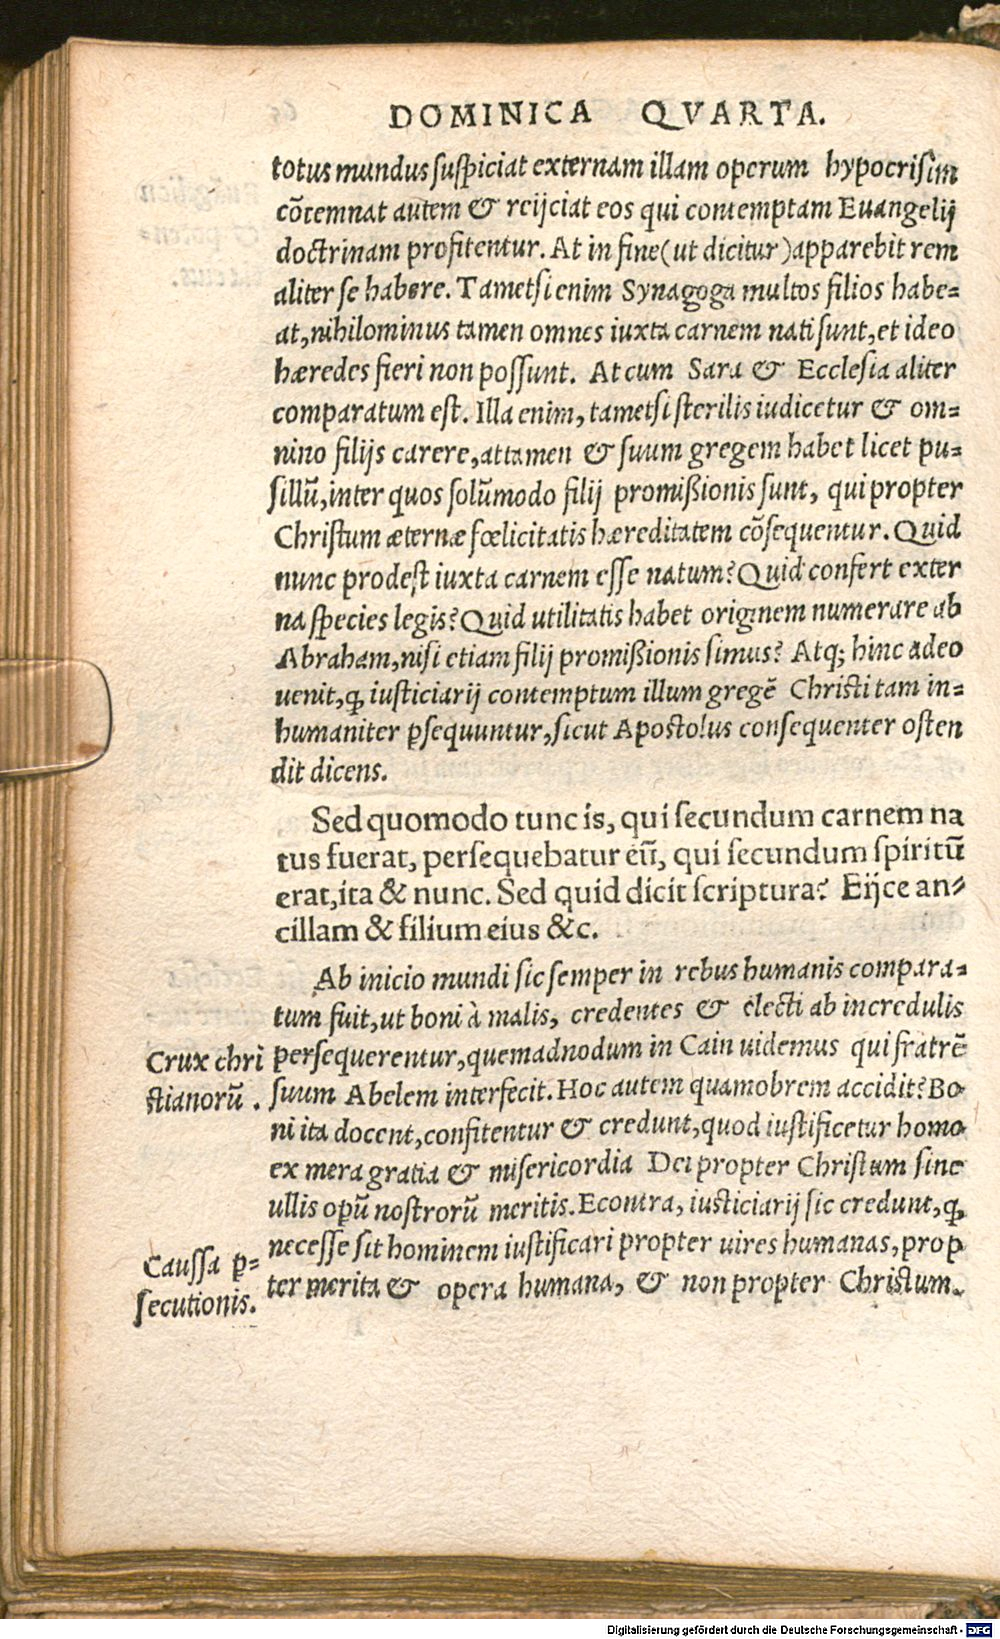 DOMINICA QVARTA.
totus mundus suspiciat externam illam operum hypocrisim
cõtemnat autem & reijciat eos qui contemptam Euangelij
doctrinam profitentur. At in fine (ut dicitur) apparebit rem
aliter se habere. Tametsi enim Synagoga multos filios habe=
at, nihilominus tamen omnes iuxta carnem nati sunt, et ideo
hæredes fieri non possunt. At cum Sara & Ecclesia aliter
comparatum est. Illa enim, tametsi sterilis iudicetur & om=
nino filijs carere, attamen & suum gregem habet licet pu=
sillũ, inter quos solũmodo filij promißionis sunt, qui propter
Christum æternæ fœlicitatis hæreditatem cõsequentur. Quid
nunc prodest iuxta carnem esse natum? Quid confert exter
na species legis? Quid utilitatis habet originem numerare ab
Abraham, nisi etiam filij promißionis simus? Atq; hinc adeo
uenit, ꝙ iusticiarij contemptum illum gregẽ Christi tam in=
humaniter ꝑsequuntur, sicut Apostolus consequenter osten
dit dicens.
Sed quomodo tunc is, qui secundum carnem na
tus fuerat, persequebatur eũ, qui secundum spiritũ
erat, ita & nunc. Sed quid dicit scriptura? Eijce an=
cillam & filium eius &c.
Ab inicio mundi sic semper in rebus humanis compara=
tum fuit, ut boni à malis, credentes & electi ab incredulis
Crux chri
stianorũ.
persequerentur, quemadnodum in Cain uidemus qui fratrẽ
suum Abelem interfecit. Hoc autem quamobrem accidit? Bo
ni ita docent, confitentur & credunt, quod iustificetur homo
ex mera gratia & misericordia Dei propter Christum sine
ullis opũ nostrorũ meritis. Econtra, iusticiarij sic credunt, ꝙ
Caussa ꝑ=
secutionis.
necesse sit hominem iustificari propter uires humanas, prop
ter merita & opera humana, & non propter Christum.
Digitalisierung gefördert durch die Deutsche Forschungsgemeinschaft - DFG